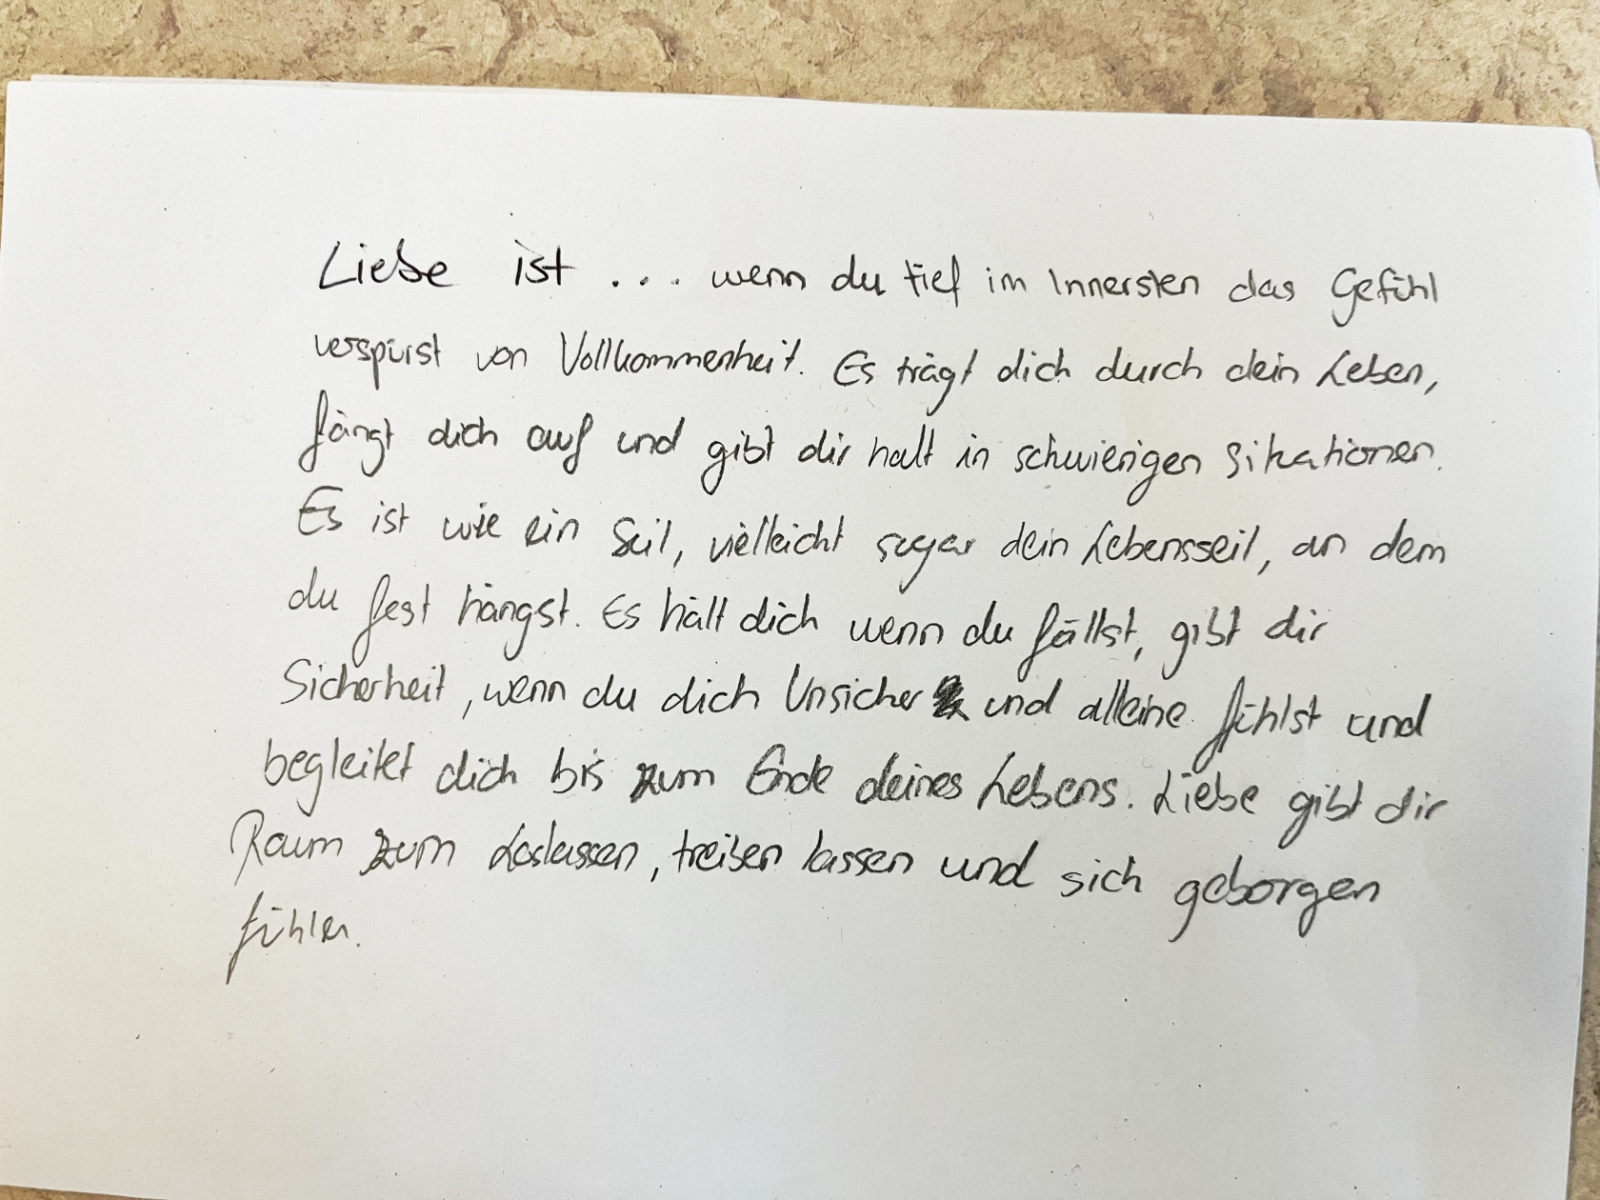 Liebe ist ... wenn du tief im Innersten das Gefühl
verspürst von Vollkommenheit. Es trägt dich durch dein Leben,
fängt dich auf und gibt dir halt in schwierigen Situationen.
Es ist wie ein Seil, vielleicht sogar dein Lebensseil, an dem
du fest hängst. Es hält dich wenn du fällst, gibt dir
Sicherheit, wenn du dich Unsicher und alleine fühlst und
begleitet dich bis zum Ende deines Lebens. Liebe gibt dir
Raum zum Loslassen, treiben lassen und sich geborgen
fühlen.